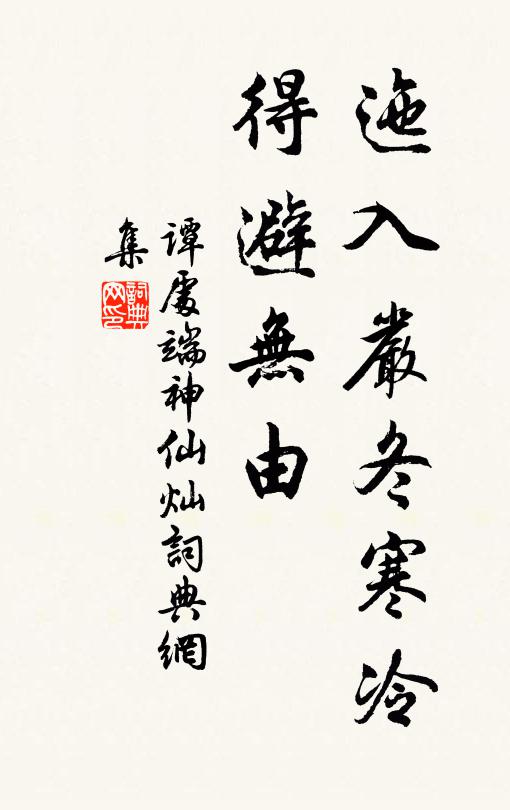 迤入嚴冬寒冷
得避無由
譚處端神仙灿詞典網
集
詞典
网印